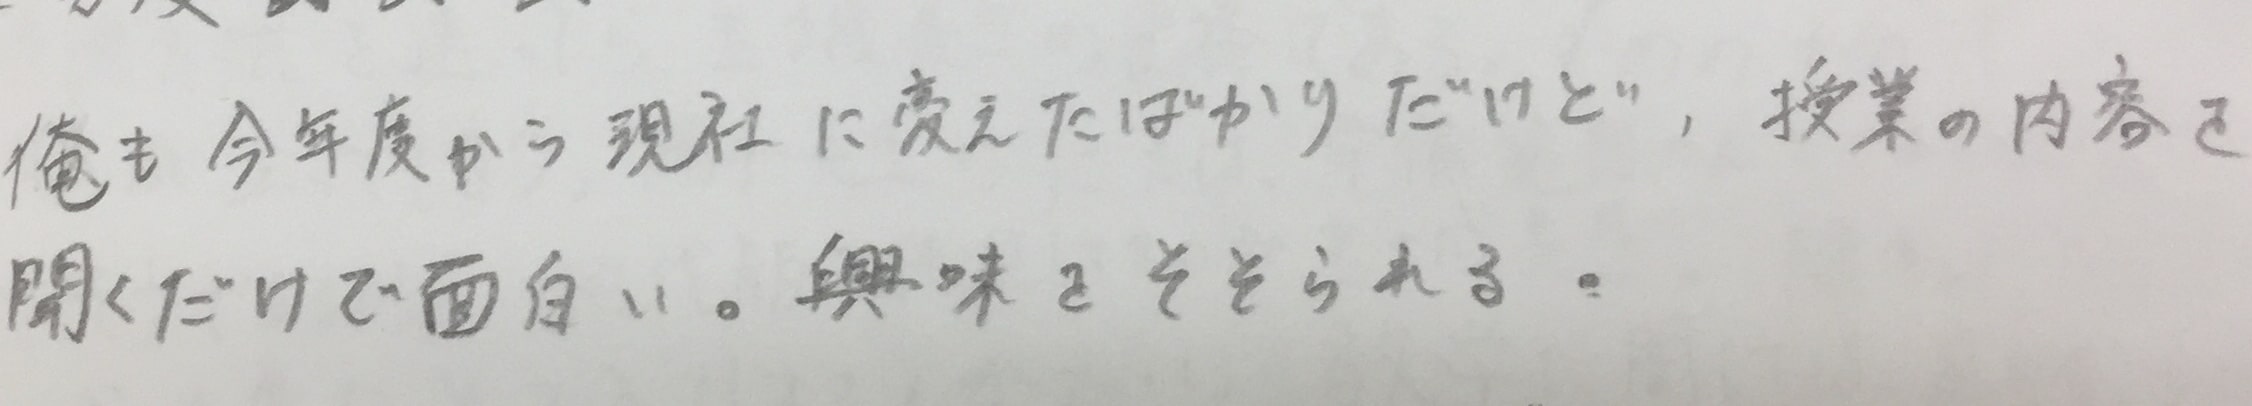 俺も今年度から現社に変えたばかりだけど，授業の内容を
聞くだけで面白い。興味をそそられる。